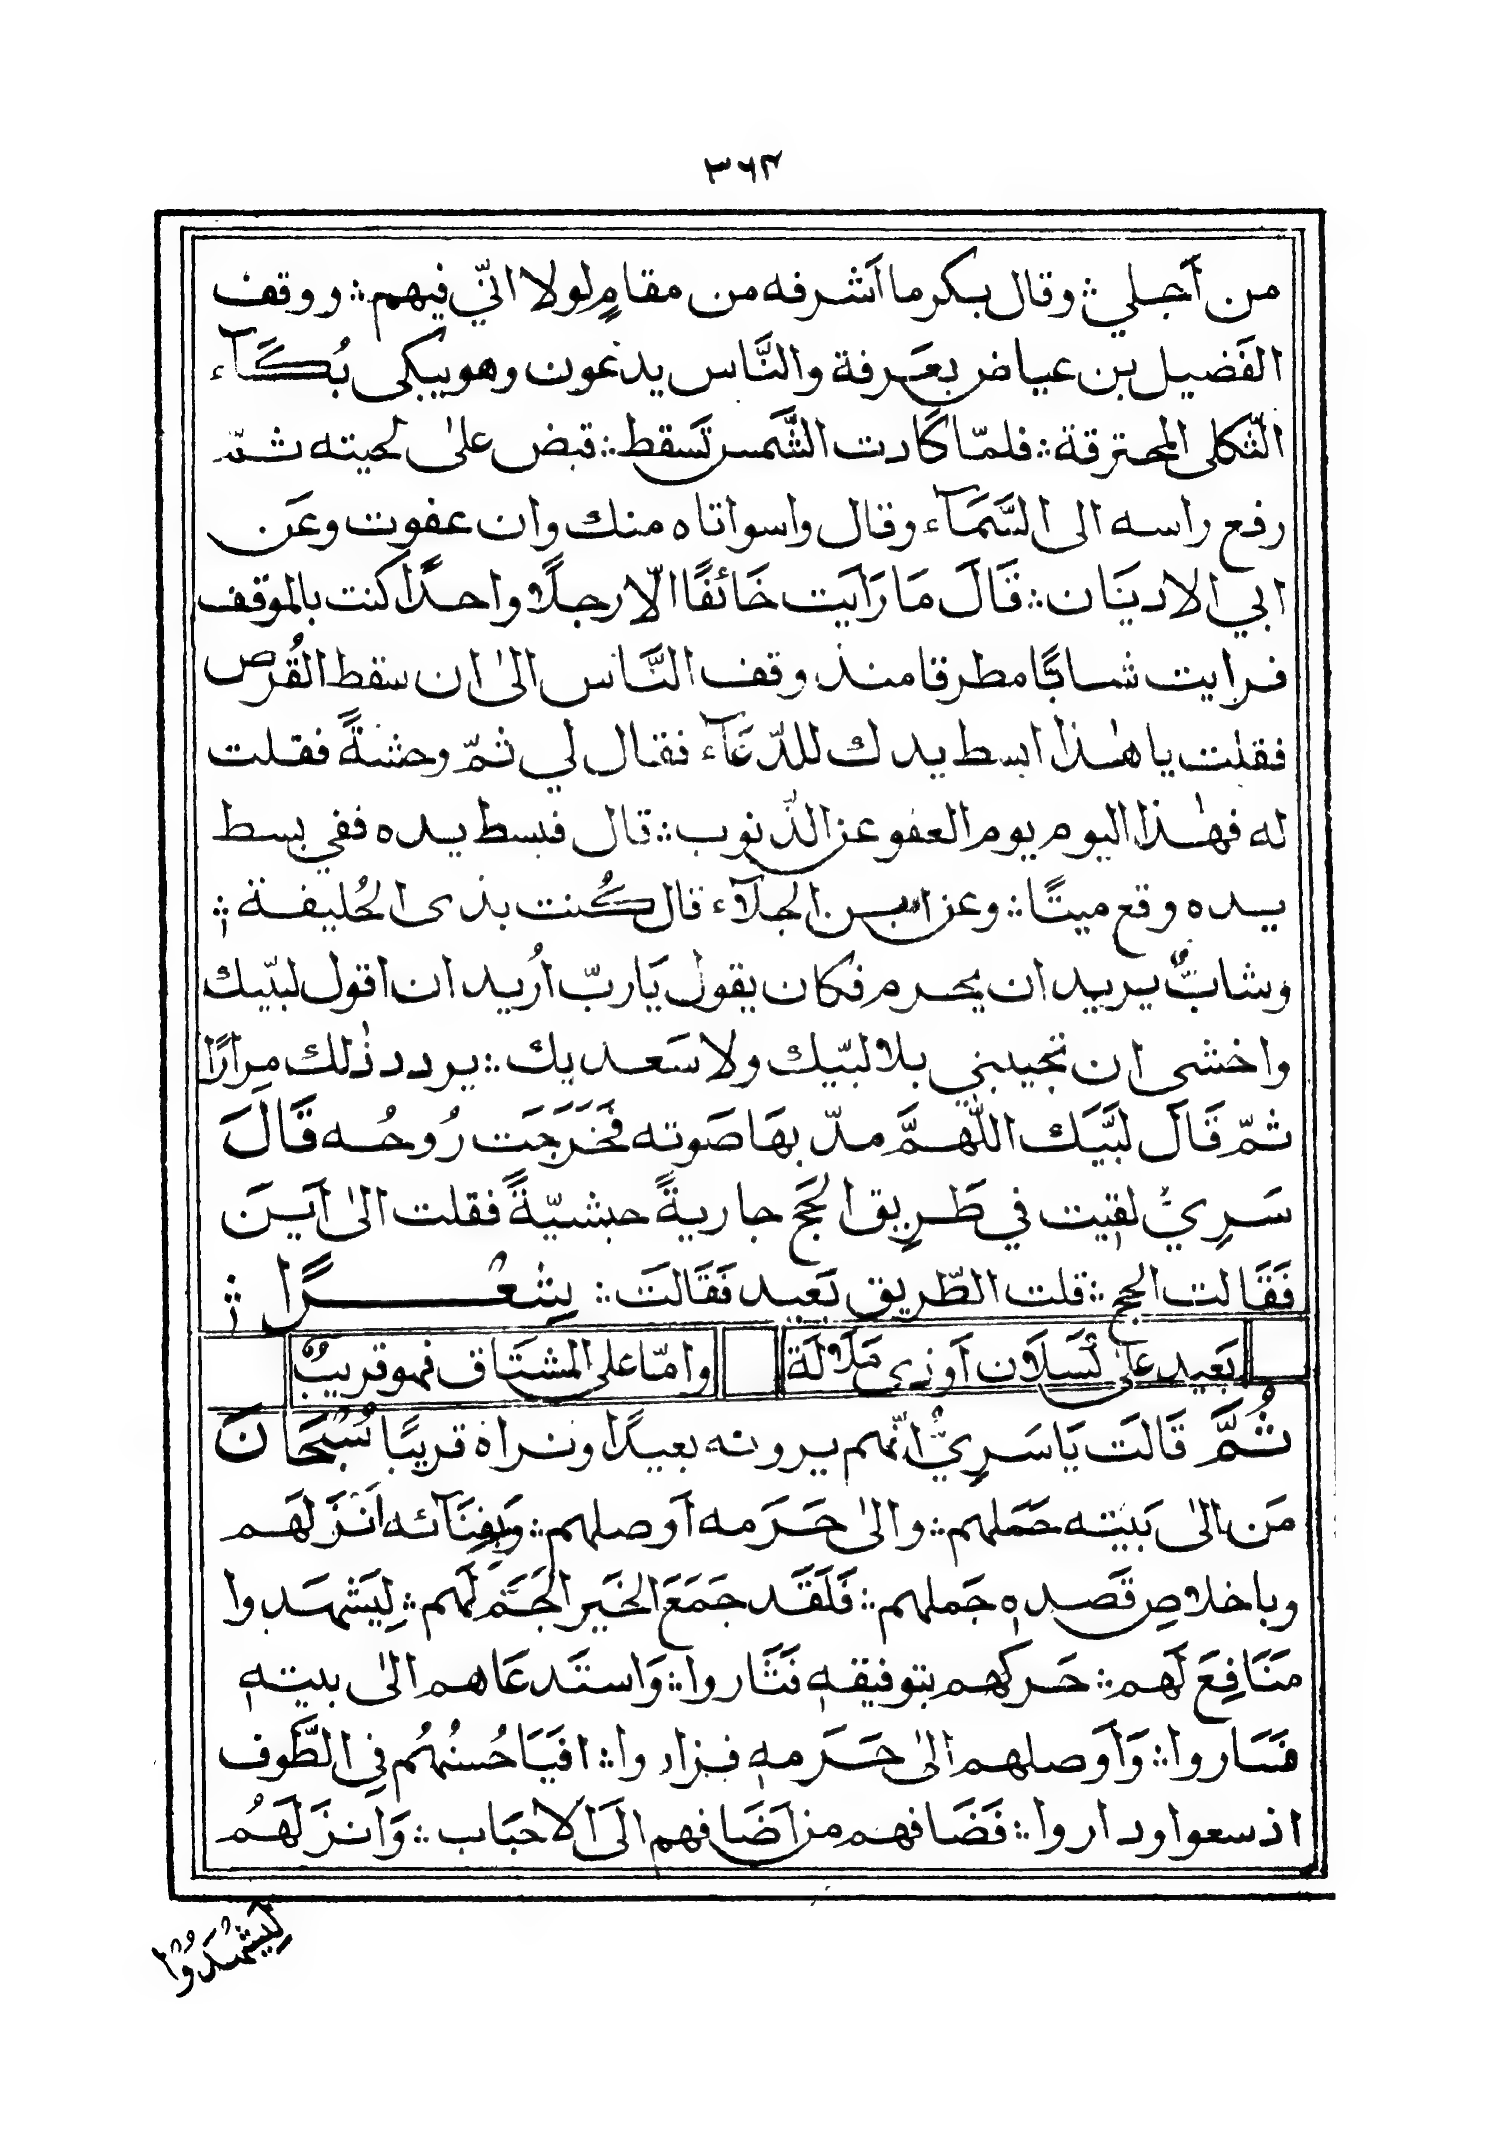 ٣٦٤
من أجلي ؞ وقال بكر ما أشرفه من مقامٍ لولا انّي فيهم ؞ ووقف
الفَضيل بن عياض بعَرفة والنَّاس يدعون وهو يبكى بُكَآء
الثّكلى المحترقة ؞ فلمّا كَادت الشَّمس تَسقط ؞ قبض على لحيته ثمّ
رفع راسه الى السَّمَآء وقال واسواتاه منك وان عفوت وعَن
ابي الاديَان ؞ قَالَ مَا رَايَت خَائفًا الّا رجلًا واحدًا كنت بالموقف
فرايت شابًّا مطرقا منذ وقف النَّاس الىٰ ان سقط القُرص
فقلت يا هٰذا ابسط يدك للدّعَآء فقال لي ثمّ وحشةً فقلت
له فهٰذا اليوم يوم العفو عن الذّنوب ؞ قال فبسط يده ففي بسط
يده وقع ميتًا ؞ وعن ابن الجلآء قال كُنت بذى الحُليفة ؞
وشابٌّ يريد ان يحرم فكان يقول يَا ربّ اُريد ان اقول لبّيك
واخشى ان تجيبني بلا لبّيك ولا سَعديك ؞ يردد ذٰلك مِرارًا
ثمّ قَالَ لَبَّيَك اللّٰهمَّ مدّ بهَا صَوته فَخَرجَت رُوحُه قَالَ
سَرِيُّ لقيت في طَرِيق الحَجّ جاريةً حبشيّةً فقلت الىٰ اَين
فَقَالت الحج ؞ قلت الطّريق بَعيد فَقَالَت ؞ شِعْرًا ؞
بَعيد علىٰ كَسلَان اَو ذى مَلَالَة
وامّا على المشتَاق فهو قريبٌ
ثُمَّ قَالَت يَا سَرِيُّ انّهم يرونه بعيدًا ونراه قريبًا سُبْحَانَ
مَن الىٰ بَيته حَمَلهم ؞ والىٰ حَرَمه اَوصلهم ؞ وَبفِنَآئه اَنزَلهَم
وباخلاصِ قَصده جَملهم ؞ فَلَقَد جَمَعَ الخَير الجَمَّ لَهم ؞ لِيَشهَدوا
مَنَافِعَ لَهم ؞ حَركهم بتوفيقهٖ فَثَاروا ؞ وَاستَدعَاهم الىٰ بيتهٖ
فسَاروا ؞ وَاَوصلهم الىٰ حَرَمهٖ فزاروا ؞ افيَا حُسنُهُم فِي الطَّوف
اذ سعوا وداروا ؞ فَضَافهم من اَضَافهم الَى الاحبَاب ؞ وَانزَلهَمُ
لِيَشهَدُوْا